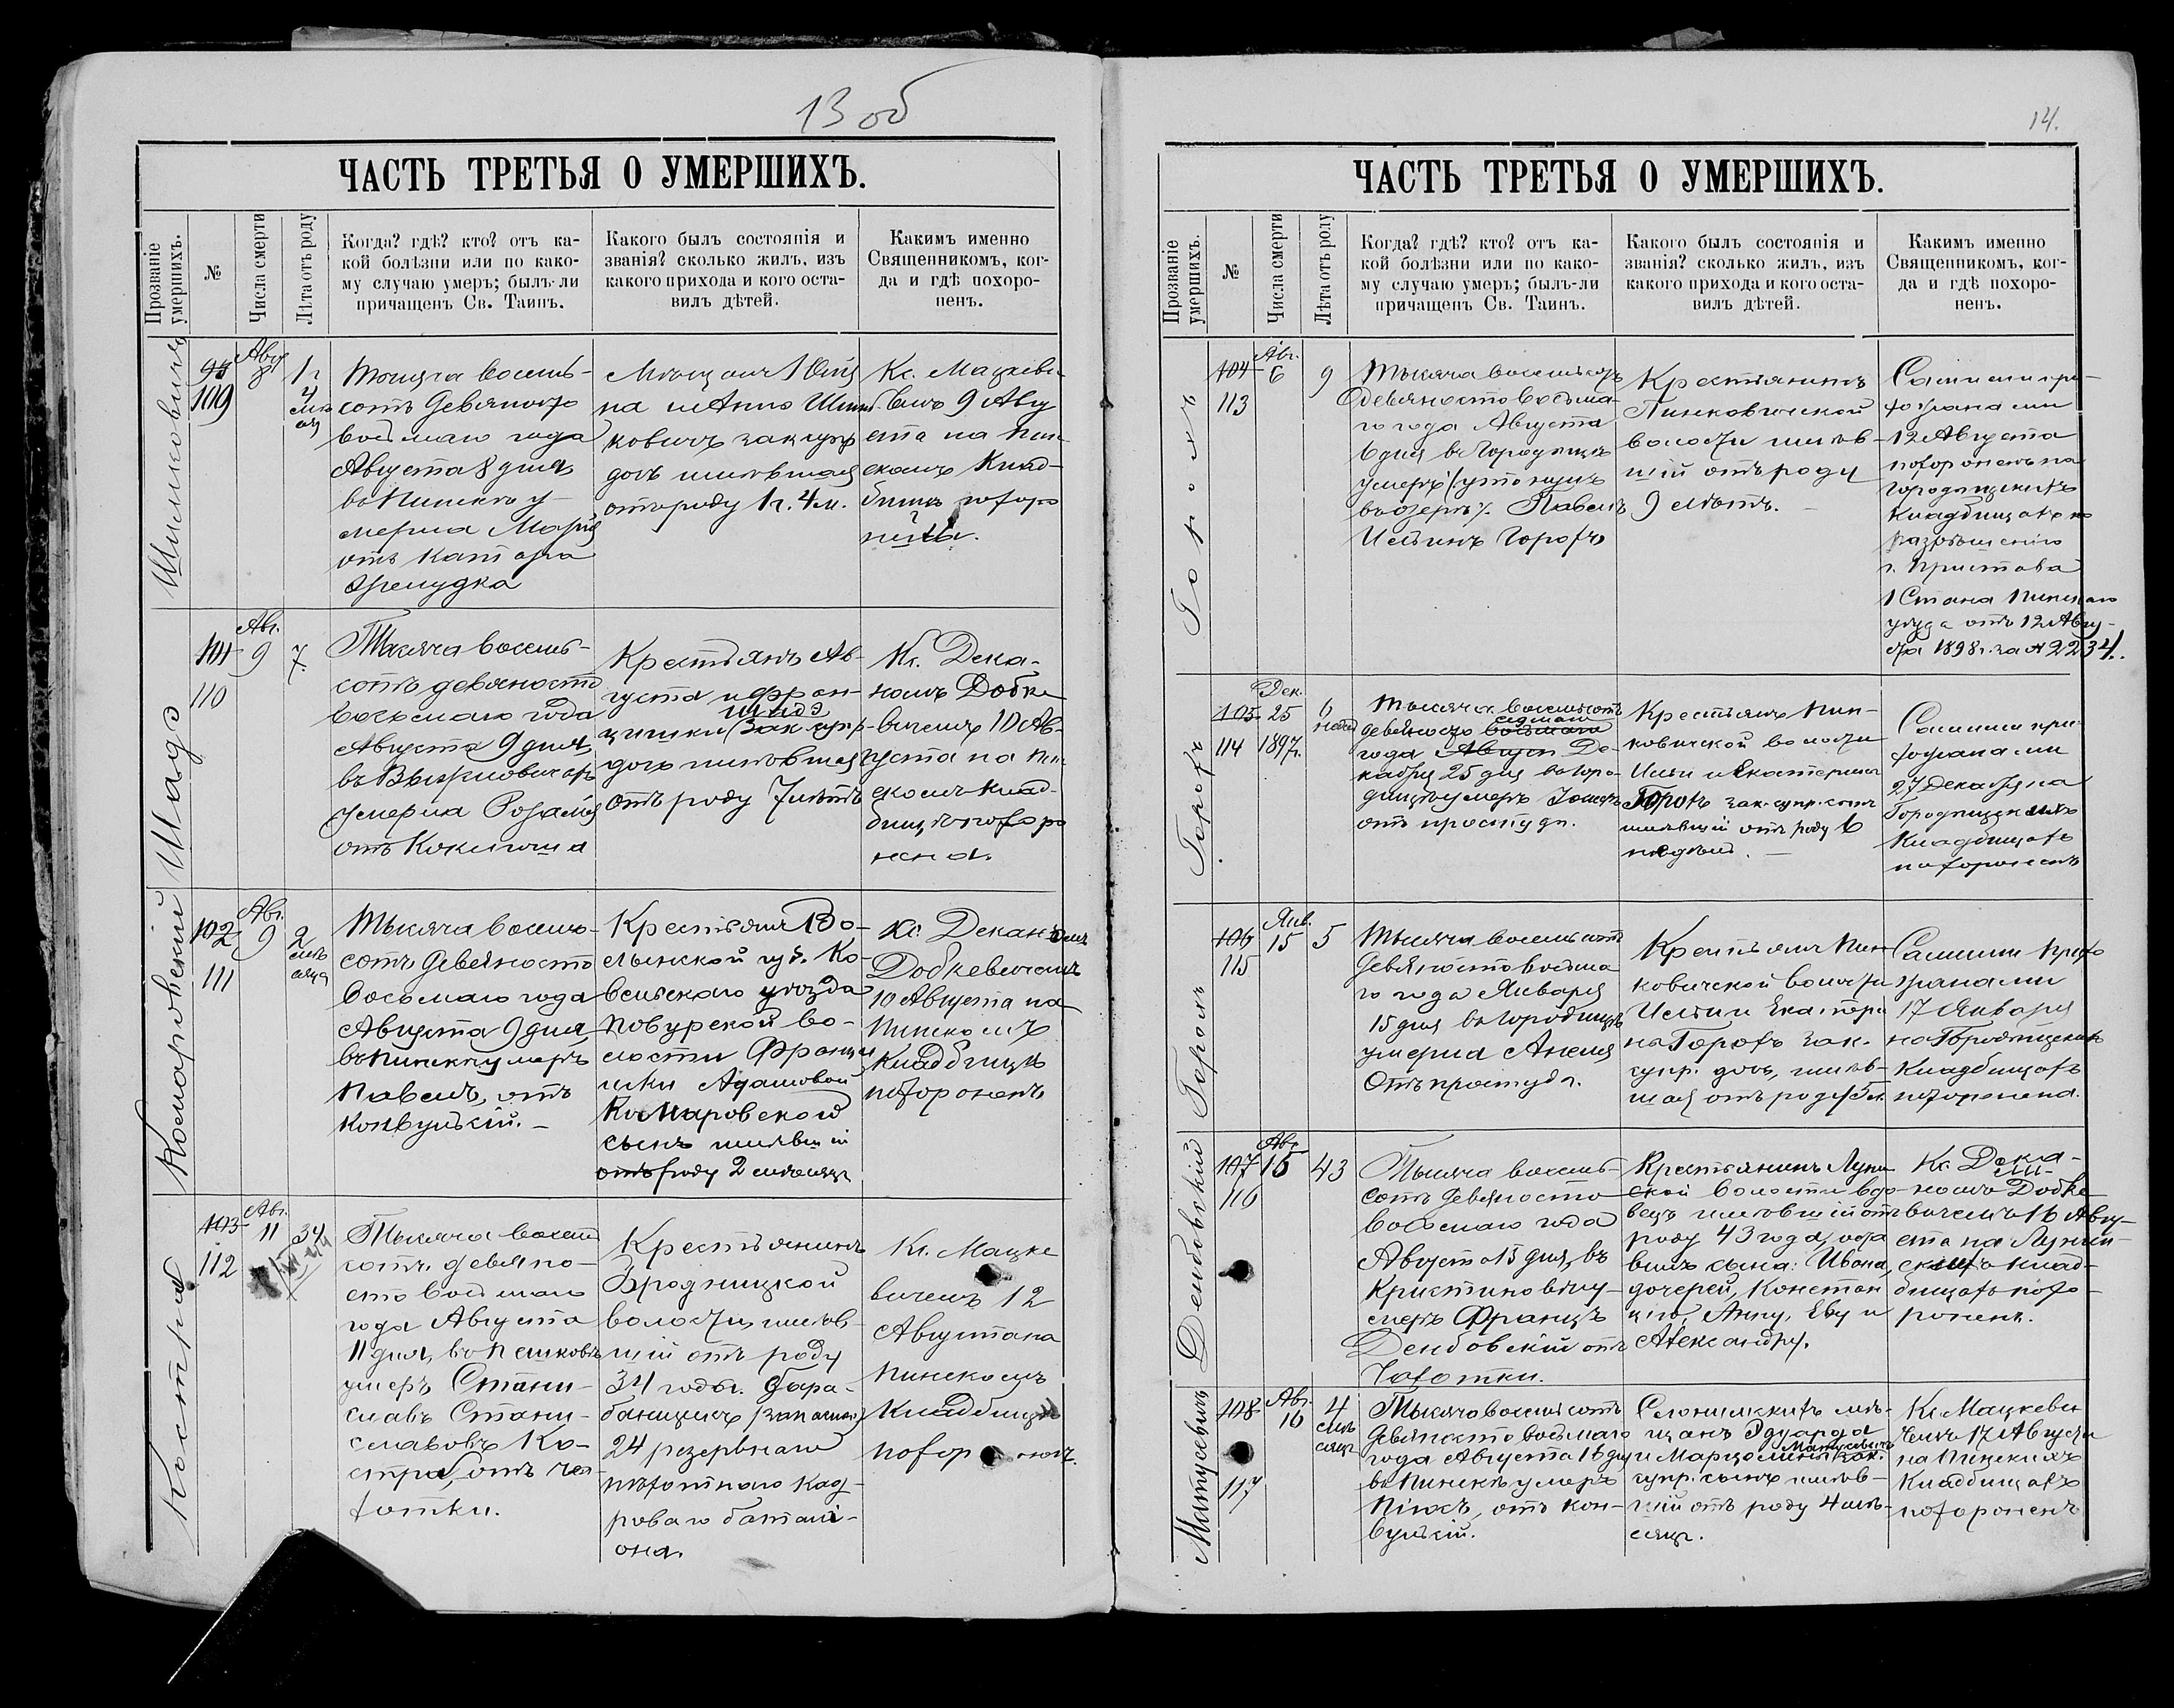 13 об
ЧАСТЬ ТРЕТЬЯ О УМЕРШИХЪ.
Прозваніе умершихъ.
№
Числа смерти
Лѣта отъ роду
Когда? гдѣ? кто? отъ ка-
кой болѣзни или по како-
му случаю умеръ; былъ-ли
причащенъ Св. Таинъ.
Какого былъ состоянія и
званія? сколько жилъ, изъ
какого прихода и кого оста-
вилъ дѣтей.
Какимъ именно
Священникомъ, ког-
да и гдѣ похоро-
ненъ.
109
Авг
8
1 г
4
мѣс
яц
Тысяча восемь-
сотъ девяносто
восьмаго года
Августа 8 дня
въ Пинскѣ у-
мерла Марія
отъ катара
желудка
Мѣщанъ
на и Анны Шим
ковичъ зак. супр
дочь жившая
отъ роду 1 г. 4 м.
Кс. Мацкеви
чемъ 9 Авгу
ста на Пин
скомъ клад-
бищѣ похоро
нена.
Шадо
101
110
Авг.
9
7.
Тысяча восемь-
сотъ девяносто
восьмаго года
Августа 9 дня,
въ Выжловичахъ
умерла Розалія
отъ коклюша
Крестьянъ Ав-
густа и Фран-
цишки Шадо зак. супр.
дочь жившая
отъ роду 7 лѣтъ
Кс. Дека-
номъ Добке
вичемъ 10 Ав-
густа на Пин
скомъ клад-
бищѣ похоро
нена.
Комаровскій
102
111
Авг.
9
2
мѣс
яца
Тысяча восемь-
сотъ девяносто
восьмаго года
Августа 9 дня,
въ Пинскѣ умеръ
Павелъ, отъ
конвульсій.
Крестьянки Во-
лынской губ. Ко-
вельскаго уѣзда
Повурской во-
лости Франци
шки Адамовой
Комаровской
сынъ жившій
отъ роду 2 мѣсяца
Кс. Деканомъ
Добкевичемъ
10 Августа на
Пинскомъ
кладбищѣ
похороненъ
Костра
103
112
Авг.
11
34
Тысяча восемь
сотъ девяно-
сто восьмаго
года Августа
11 дня, въ
умеръ Стани-
славъ Стани-
славовъ Ко-
стра, отъ ча-
хотки.
Крестьянинъ
Бродницкой
волости, жив-
шій отъ роду
34 года. бара-
банщикъ (запасный)
24 резервнаго
пѣхотнаго кад-
роваго баталі-
она.
Кс. Мацке
вичемъ 12
Августа на
Пинскомъ
кладбищѣ
похороненъ.
14.
ЧАСТЬ ТРЕТЬЯ О УМЕРШИХЪ.
Прозваніе умершихъ.
№
Числа смерти
Лѣта отъ роду
Когда? гдѣ? кто? отъ ка-
кой болѣзни или по како-
му случаю умеръ; былъ-ли
причащенъ Св. Таинъ.
Какого былъ состоянія и
званія? сколько жилъ, изъ
какого прихода и кого оста-
вилъ дѣтей.
Какимъ именно
Священникомъ, ког-
да и гдѣ похоро-
ненъ.
104
113
Авг.
6
9
Тысяча восемьсотъ
девяносто восьма-
го года Августа
6 дня въ Городищѣ
умеръ (утонулъ
въ озерѣ). Павелъ
Ильинъ Горохъ
Крестьянинъ
Пинковичской
волости жив-
шій отъ роду
9 лѣтъ.
Самими при-
хожанами
12 Августа
похороненъ на
Городищскихъ
кладбищахъ по
разрѣшенію
г. Пристава
1 Стана Пинскаго
уѣзда отъ 12 Авгу-
ста 1898 г. за № 2234.
Горохъ
105
114
Дек.
25
1897 г.
6
нед
Тысяча восемьсотъ
девяносто восьмаго седьмаго
года Август Де-
кабря 25 дня въ Горо-
дищѣ умеръ Іосифъ
отъ простуды.
Крестьянъ Пин-
ковичской волости
Ильи и Екатерины
Горохъ зак. супр. сынъ
жившій отъ роду 6
недѣль.
Самими при
хожанами
27 Декабря на
Городищскихъ
кладбищахъ
похороненъ
106
115
Янв.
15
5
Тысяча восемьсотъ
девяносто восьма
го года Января
15 дня въ Городищѣ
умерла Анеля
отъ простуды.
Крестьянъ Пин
ковичской волости
Ильи и Екатери
ны Горохъ зак.
супр. дочь, жив-
шая отъ роду 5 л.
Самими прихо
жанами
17 Января
на Городищскихъ
кладбищахъ
похоронена.
Дембовскій
107
116
Авг
15
43
Тысяча восемь-
сотъ девяносто
восьмаго года
Августа 15 дня, въ
Кристиновѣ у-
меръ Францъ
Дембовскій отъ
чахотки.
Крестьянинъ Луни
ской волости вдо-
вецъ жившій отъ
роду 43 года, оста
вилъ сына: Ивана,
дочерей, Констан
цію, Анну, Еву и
Александру.
Кс. Дека-
номъ Добке
вичемъ 16 Авгу-
ста на Лунин-
скихъ клад-
бищахъ похо-
роненъ.
Матусевичъ
108
117
Авг.
16
4
мѣс
яца
Тысяча восемьсотъ
девяносто восьмаго
года Августа 16 дня
въ Пинскѣ умеръ
Піюсъ, отъ кон-
вульсій.
Слонимскихъ мѣ-
щанъ Эдуарда
и Марціо Матусевичъ зак.
супр. сынъ жив-
шій отъ роду 4 мѣ-
сяца.
Кс. Мацкеви
чемъ 17 Августа
на Пинскихъ
кладбищахъ
похороненъ